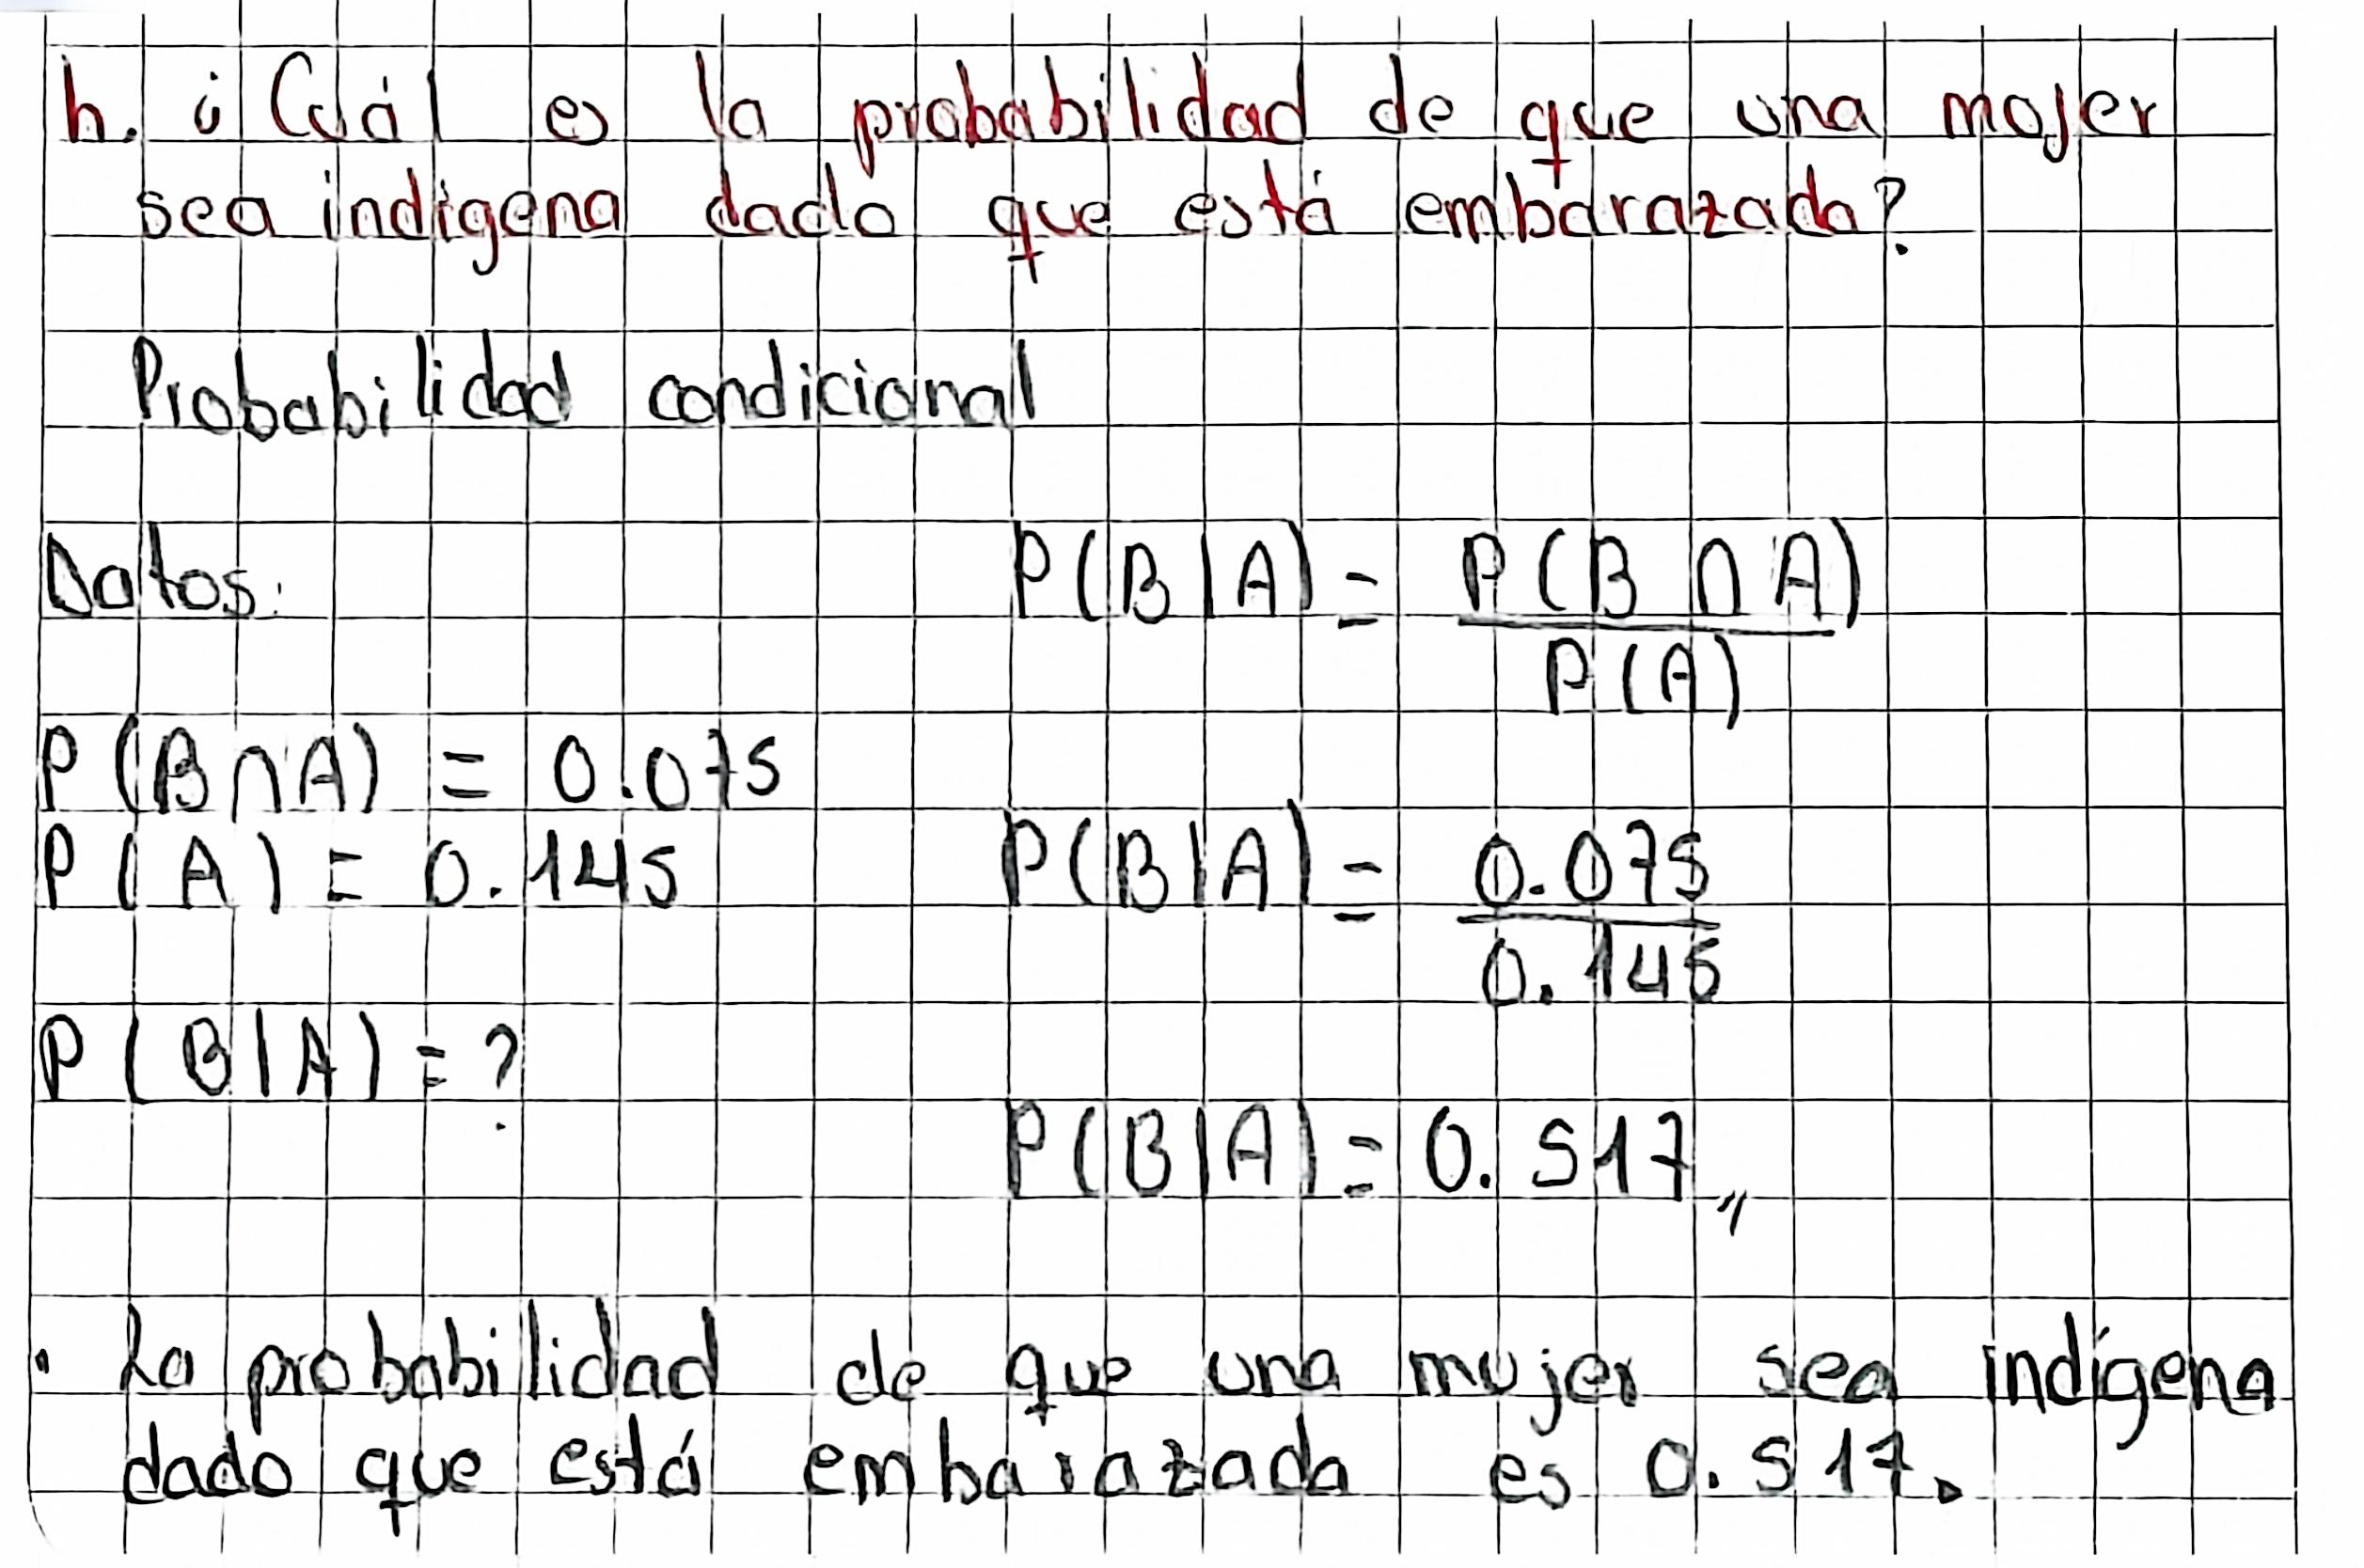 h. ¿Cuál es la probabilidad de que una mujer
sea indígena dado que está embarazada?
Probabilidad condicional
Datos:
P(B∩A) = 0.075
P(A) = 0.145
P(B|A) = ?
P(B|A) = P(B ∩ A)
P(A)
P(B|A) = 0.075
0.145
P(B|A) = 0.517,,
· La probabilidad de que una mujer sea indígena
dado que está embarazada es 0.517.